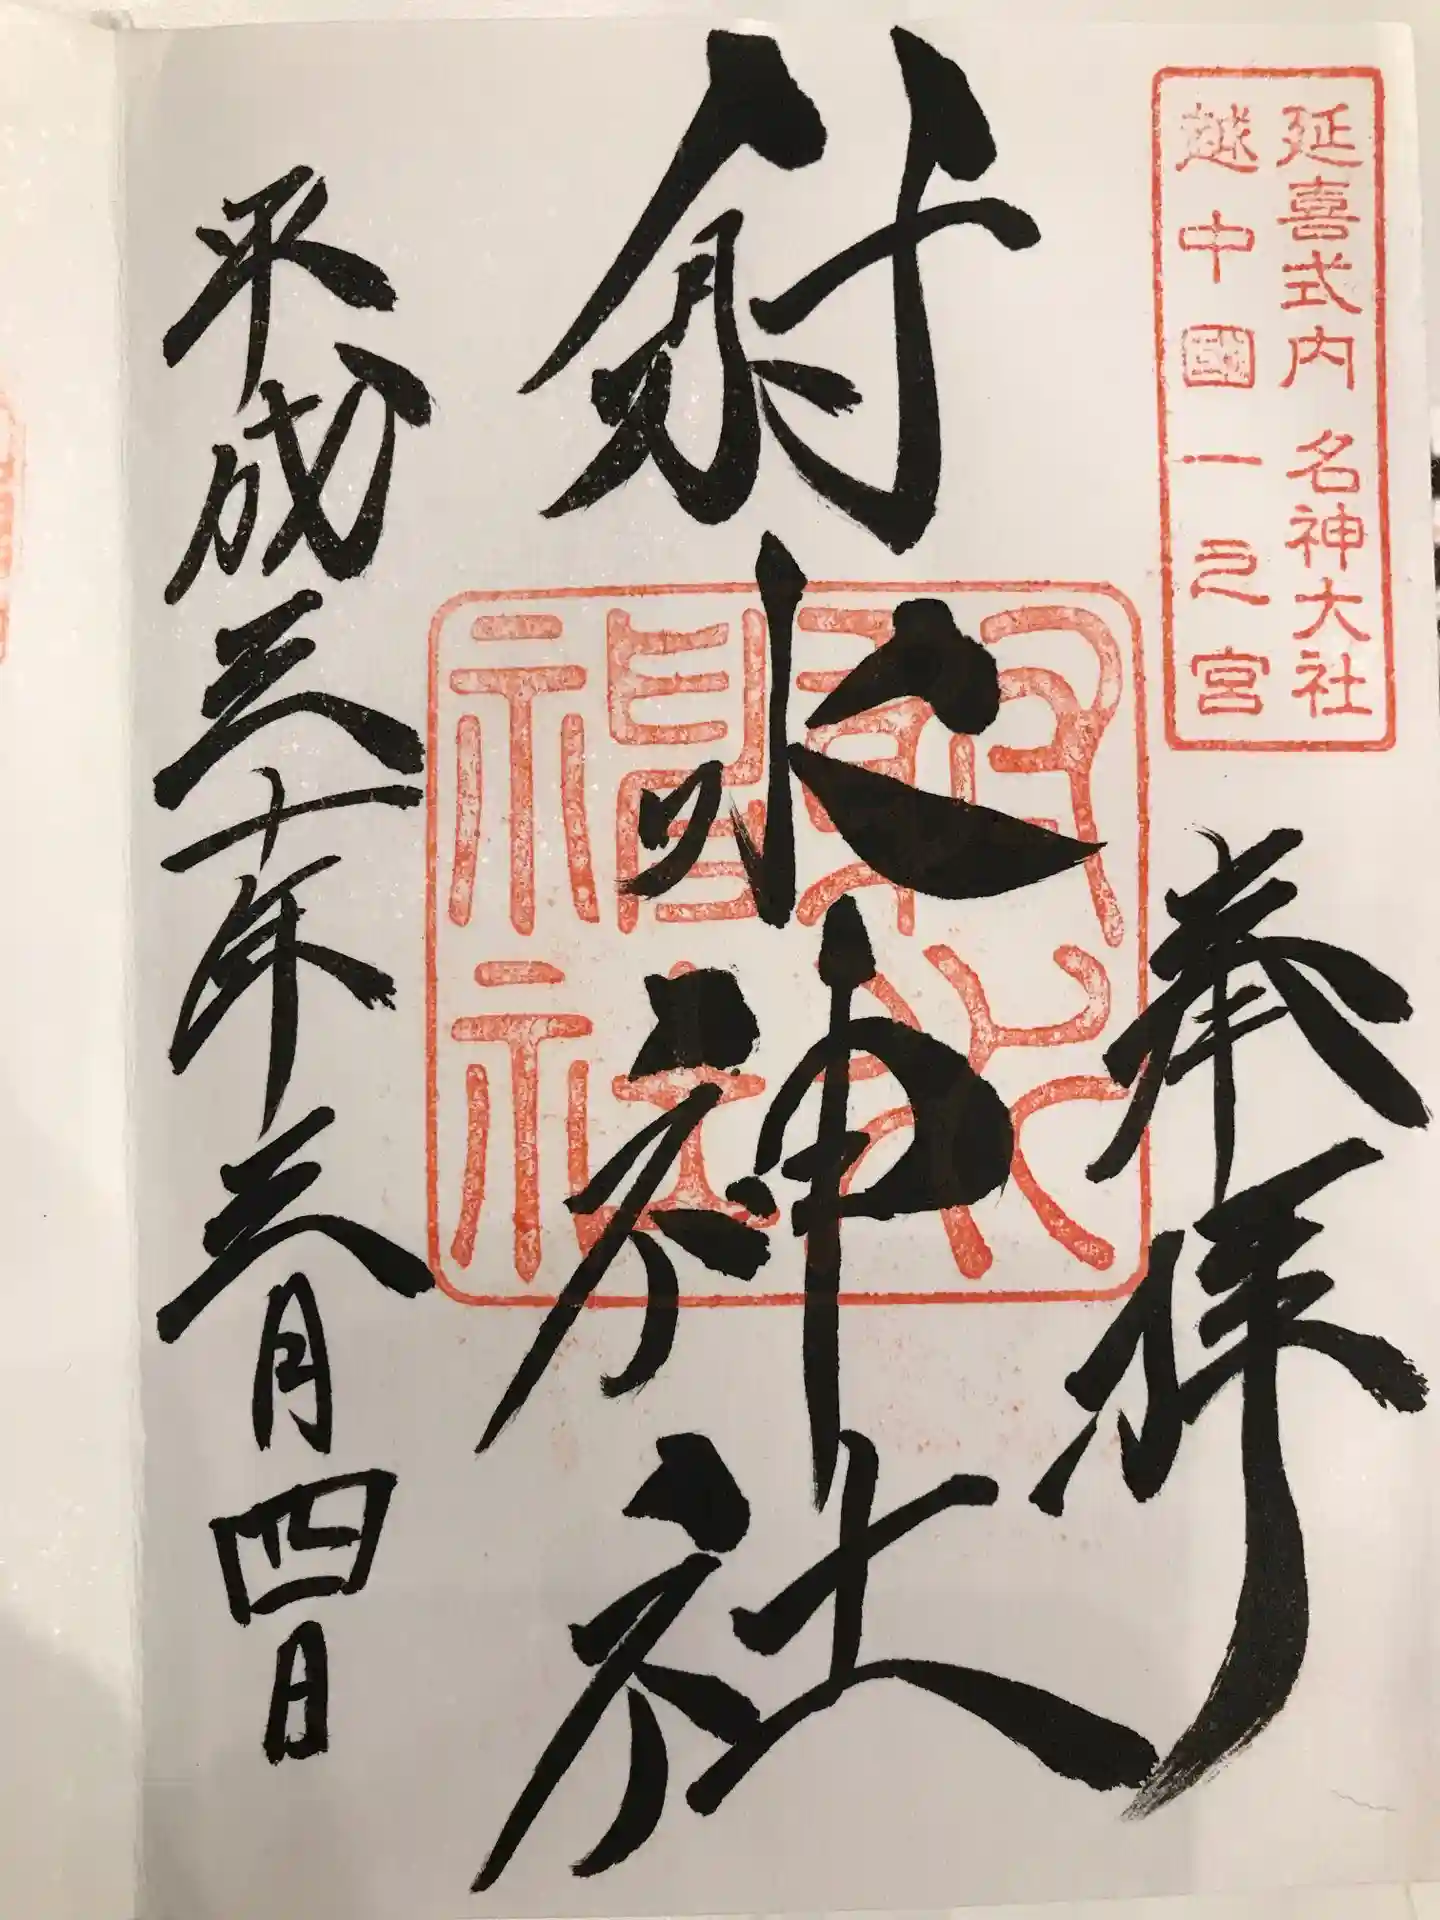 延喜式内 名神大社
越中國一之宮
奉拝
射水神社
射水
神社
平成三十年三月四日